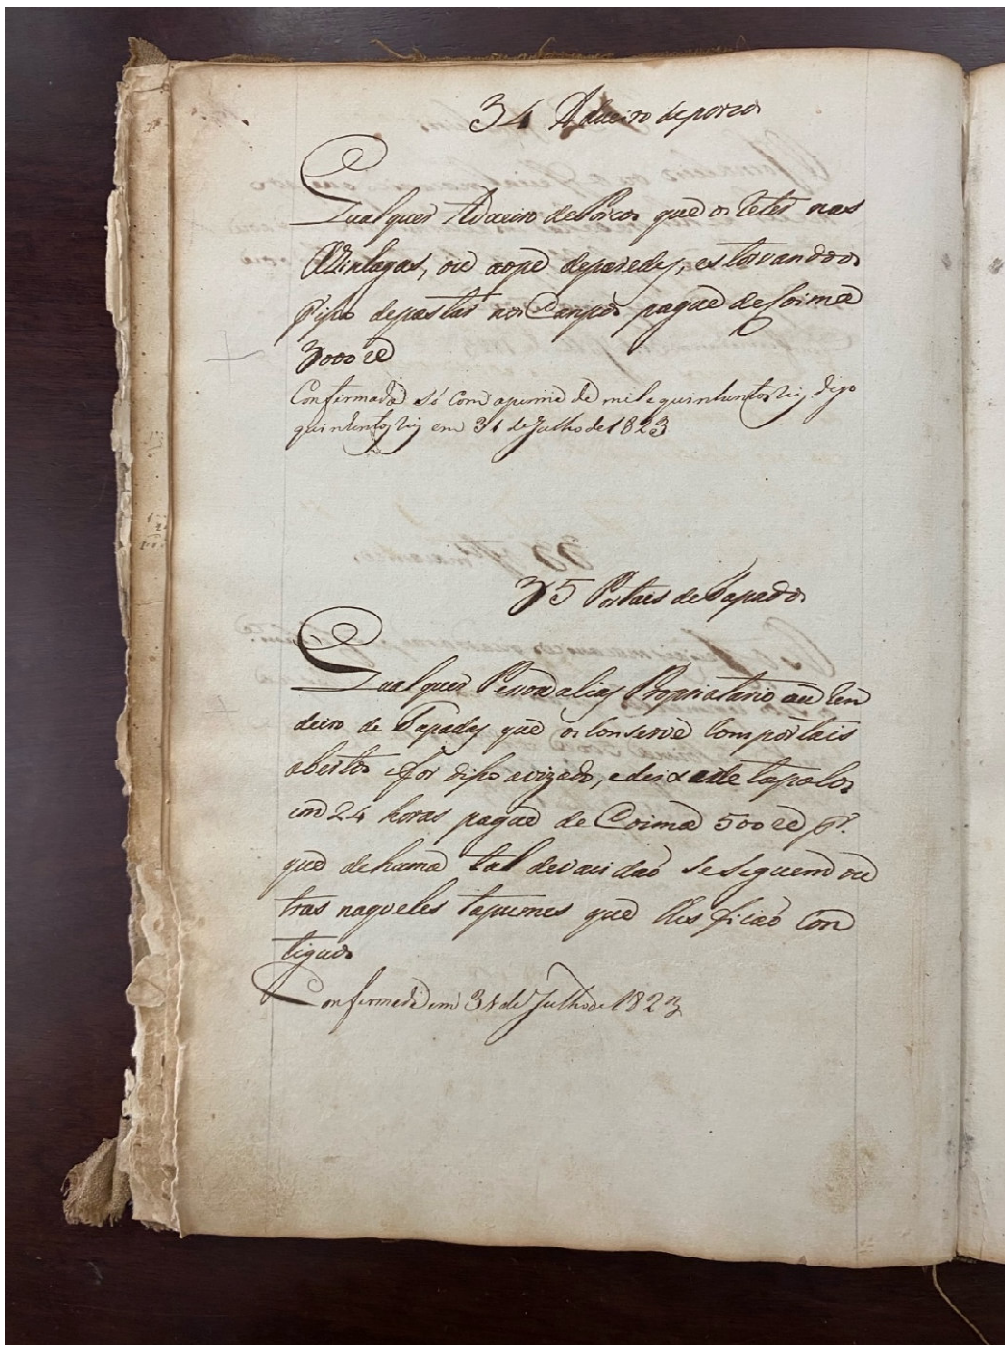 34 Adueiro de porcos
Qualquer Adueiro de Porcos que os deter nas
Restagas, ou ao pé de paredes, estorvandoos
disso de pastar nos Campos pague de Coima
3000 re
Confermada só com apenna de mil e quinhentos reis, digo
quinhentos reis em 31 de Julho de 1823
35 Portaes de Tapados
Qualquer Pessoa alias Propriatario ou ren
deiro de Tapadas que os conserve com portais
abertos e for disso avizado, e deixar de tapalos
em 24 horas pague de Coima 500 re pr.
que de huma tal devacidaõ se seguem ou
tras naqueles tapumes que lhes ficaõ con
tiguos
Confermada em 31 de Julho de 1823